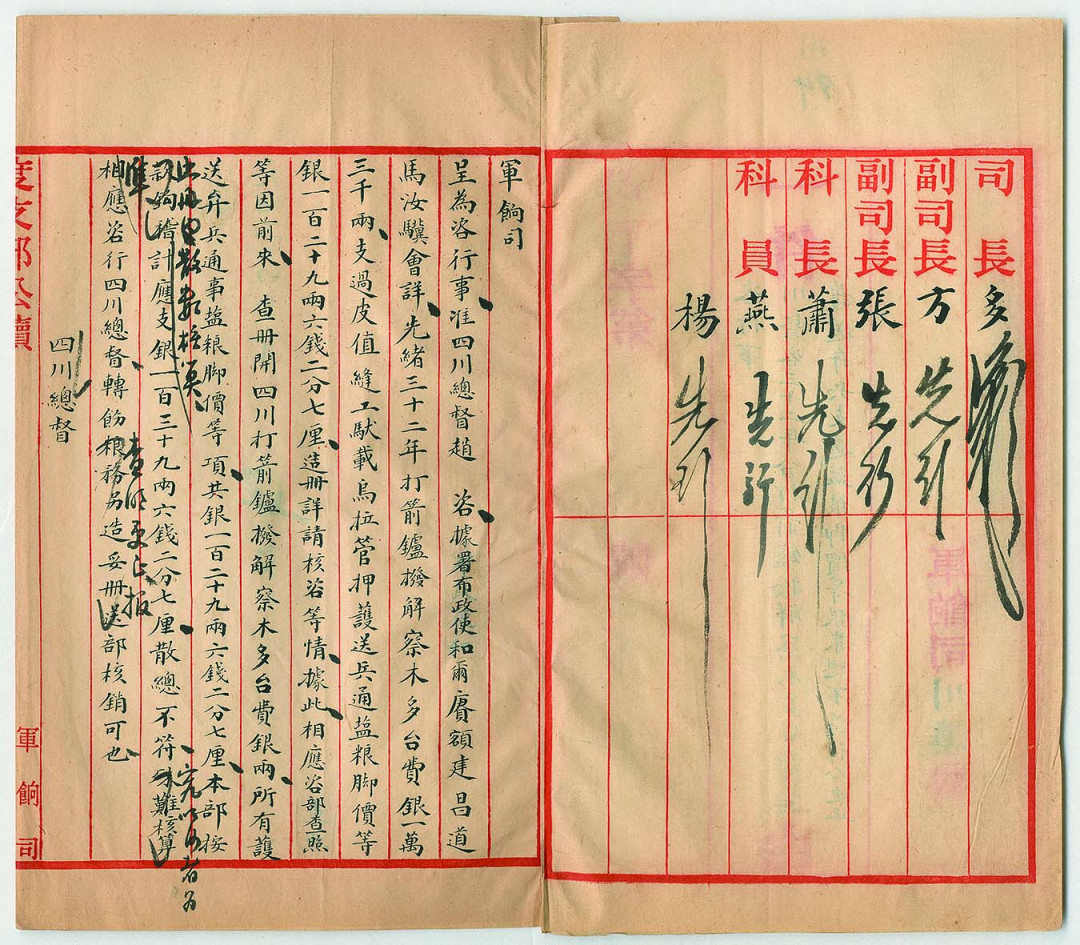 司長 多
副司長 方 先行
副司長 張 先行
科長 蕭 先行
科員 燕 先行
楊 先行
軍餉司
呈為咨行事准四川總督趙 咨據署布政使和爾賡額建昌道
馬汝驥會詳光緒三十二年打箭鑪撥解察木多台費銀一萬
三千兩支過皮值縫工馱載烏拉管押護送兵通盐粮脚價等
銀一百二十九兩六錢二分七厘造冊詳請核咨等情據此相應咨部查照
等因前來 查冊開四川打箭鑪撥解察木多台費銀兩所有護
送弁兵通事盐粮脚價等項共銀一百二十九兩六錢二分七厘本部按
款鉤稽計應支銀一百三十九兩六錢二分七厘散總不符殊難核算
究以何者為
準
相應咨行四川總督轉飭粮務另造妥冊送部核銷可也
查明更正報
四川總督
度支部公牘 軍餉司